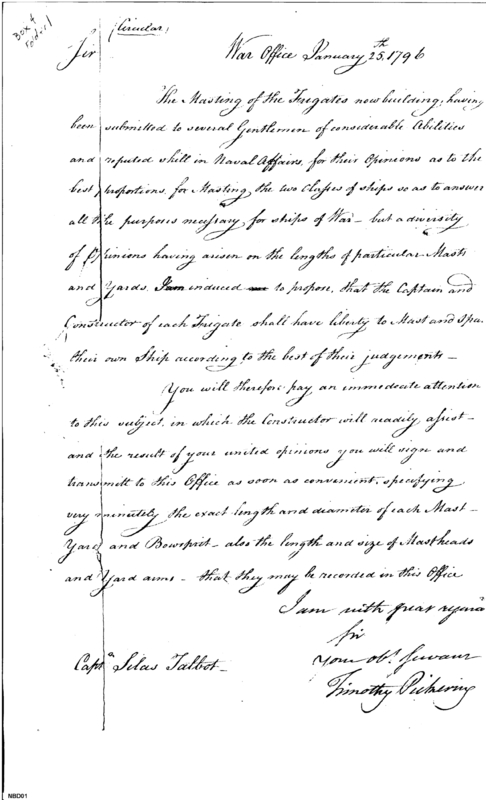 Box 4
folder 1
(Circular)
Sir
War Office January 25th. 1796
The Masting of the Frigates now building, having
been submitted to several Gentlemen of considerable Abilities
and reputed skill in Naval Affairs, for their Opinions as to the
best proportions, for Masting the two Classes of ships so as to answer
all the purposes necessary, for ships of War – but a diversity
of Opinions having arisen on the lengths of particular Masts
and Yards. I am induced to propose, that the Captain and
Constructor of each Frigate shall have liberty to Mast and Spar
their own Ship according to the best of their judgements –
You will therefore pay an immediate attention
to this subject, in which the Constructor will readily assist –
and the result of your united opinions you will sign and
transmitt to this Office as soon as convenient, specifying
very minutely the exact length and diameter of each Mast –
Yard and Bowsprit – also the length and size of Mastheads
and Yard arms – that they may be recorded in this Office
I am with great regard
Sir
Your obt. Servant
Captn Silas Talbot –
Timothy Pickering
NBD01